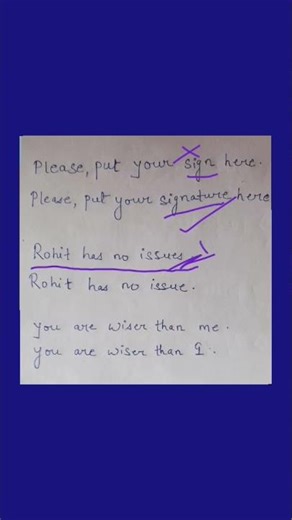 Please, put your sign here.
Please, put your signature here
Rohit has no issues.
Rohit has no issue.
you are wiser than me.
you are wiser than I.